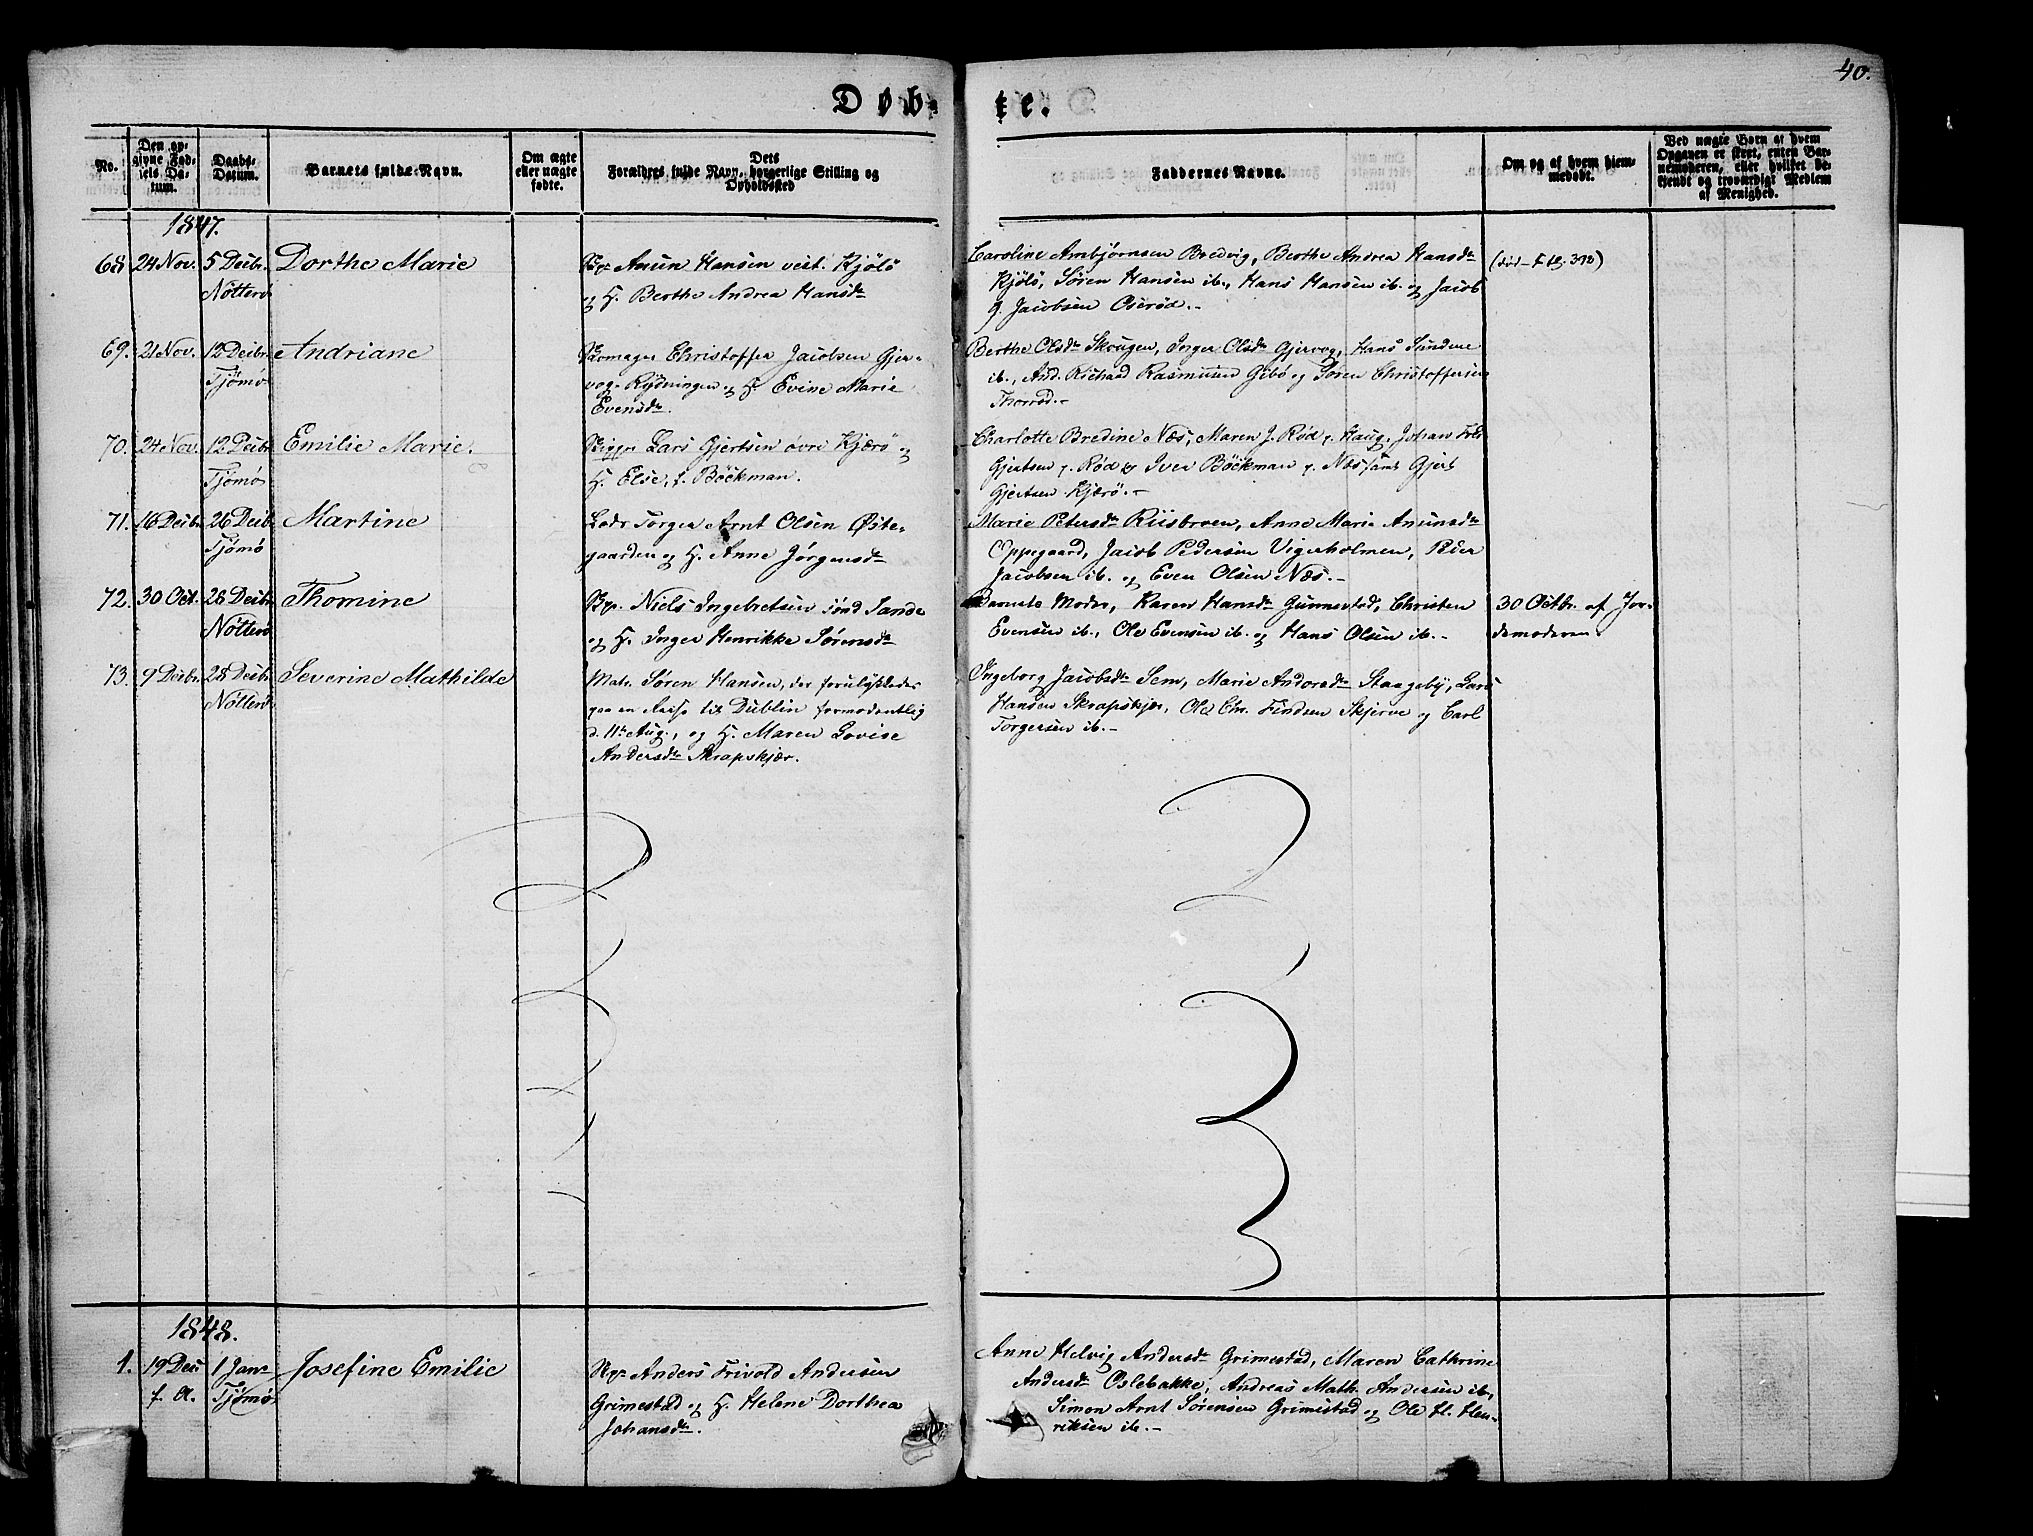 40.
Døb-
te.
No.
Den op-
givne Fød-
sels Da-
tum.
Daabs-
Datum.
Barnets fulde Navn.
Om ægte
eller uægte
fødte.
Dets
Forældres fulde Navn, borgerlige Stilling og
Opholdssted
Faddernes Navne.
Om og af hvem hjem-
medøbt.
Ved uægte Børn af hvem
Opgaven er skeet, enten Bar-
nemoderen, eller hvilket be-
kjendt og troværdigt Medlem
af Menighed.
1847.
68 24 Nov. 5 Decbr. Dorthe Marie
Nötterö
Anun Hansen vest. Kjölö
og H. Berthe Andrea Hansdr
Caroline Arnbjørnsen Bredvig, Berthe Andrea Hansdr
Kjölö, Sören Hansen ib., Hans Hansen ib. og Jacob
g. Jacobsen Oserød.-
69. 21 Nov. 12 Decbr. Andriane
Tjömö
Christoffer Jacobsen Gjer-
vog- Rydningen og H. Evine Marie
Evensdr.
Berthe Olsdr Skougen, Inger Olsdr Gjervog, Hans Sundene
ib., And. Richard Rasmusen Gibö og Sören Christoffersen
Thorrød.-
70. 24 Nov. 12 Decbr. Emilie Marie.
Tjömö
Lars Gjertsen övre Kjærö og
H. Else, f. Böckman.
Charlotte Bredine Næs, Maren J. Rød p. Haug, Johan Fr.
Gjertsen p. Rød og Iver Böckman p. Næs samt Gjert
Gjertsen Kjærö.-
71. 16 Decbr. 26 Decbr. Martine
Tjömö
Torger Arnt Olsen Øste-
gaarden og H. Anne Jörgensdr
Marie Petersdr Riisbroen, Anne Marie Anunsdr
Oppegaard, Jacob Pedersen Vigerholmen, Peder
Jacobsen ib. og Even Olsen Næs.-
72. 30 Oct. 28 Decbr. Thomine
Nötterö
Niels Ingebretsen sönd Sande
og H. Inger Henrikke Sörensdr
Barnets Moder, Karen Hansdr Gunnestad, Christen
Evensen ib., Ole Evensen ib. og Hans Olsen ib.-
30 Octbr. af Jor-
demoderen.
73. 9 Decbr. 28 Decbr. Severine Mathilde
Nötterö
Matr. Sören Hansen, der forulykkedes
paa en Reise til Dublin formodentlig
d. 11te Aug., og H. Maren Lovise
Andersdr Skrapskjær.
Ingeborg Jacobsdr Sem, Marie Andorsdr Staageby, Lars
Hansen Skrapskjær, Ole Chr. Findsen Skjerve og Carl
Torgersen ib.-
1848.
1. 19 Dec. 1 Janr Josefine Emilie
f. A. Tjömö
Anders Frivold Andersen
Grimestad og H. Helene Dorthea
Johansdr.
Anne Helvig Andersdr Grimestad, Maren Cathrine
Andersdr Oslebakke, Andreas Math. Andersen ib.,
Simon Arnt Sörensen Grimestad og Ole H. Hen-
riksen ib.-